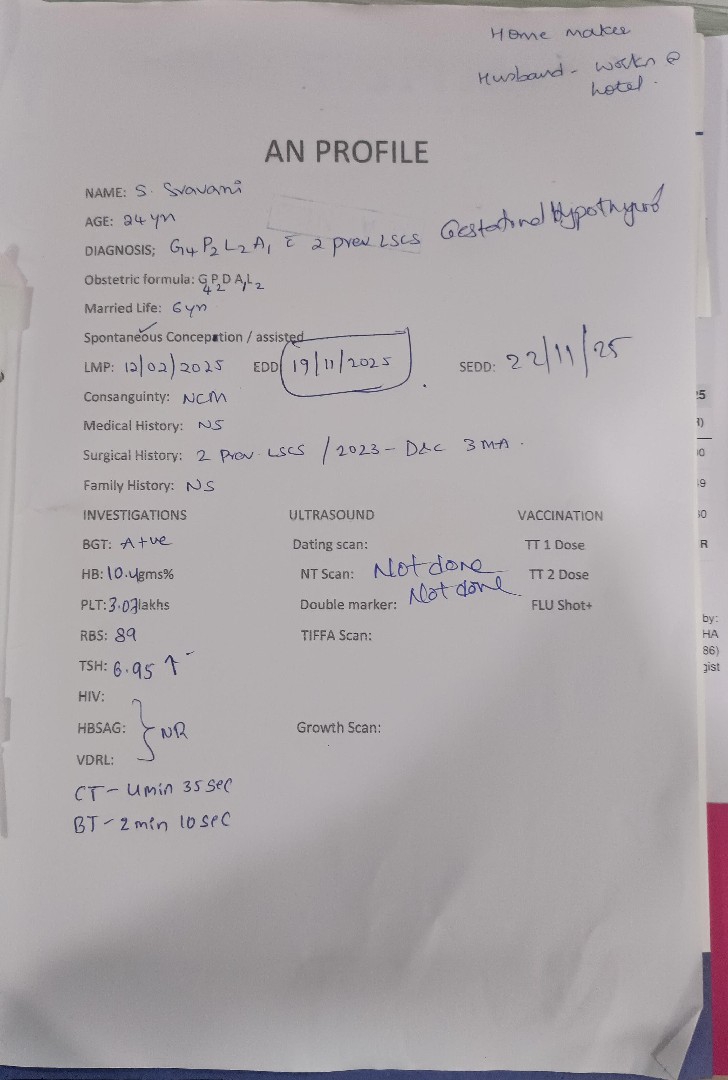 Home maker
Husband - works @
hotel.
AN PROFILE
NAME: S. Sravani
AGE: 24 yrs
DIAGNOSIS; G4 P2 L2 A1 c̄ 2 prev LSCS Gestational Hypothyroid
Obstetric formula: G4P2D A1L2
Married Life: 6yrs
Spontaneous Concepation / assisted
LMP: 12/02/2025 EDD 19/11/2025 SEDD: 22/11/25
Consanguinty: NCM
Medical History: NS
Surgical History: 2 Prev LSCS / 2023 - D&C 3 MA.
Family History: NS
INVESTIGATIONS ULTRASOUND VACCINATION
BGT: A+ve Dating scan: TT 1 Dose
HB: 10.4gms% NT Scan: Not done TT 2 Dose
PLT: 3.07lakhs Double marker: Not done FLU Shot+
RBS: 89 TIFFA Scan:
TSH: 6.95 ↑
HIV:
HBSAG: } NR Growth Scan:
VDRL:
CT - 4min 35 sec
BT - 2 min 10 sec
by:
HA
86)
gist